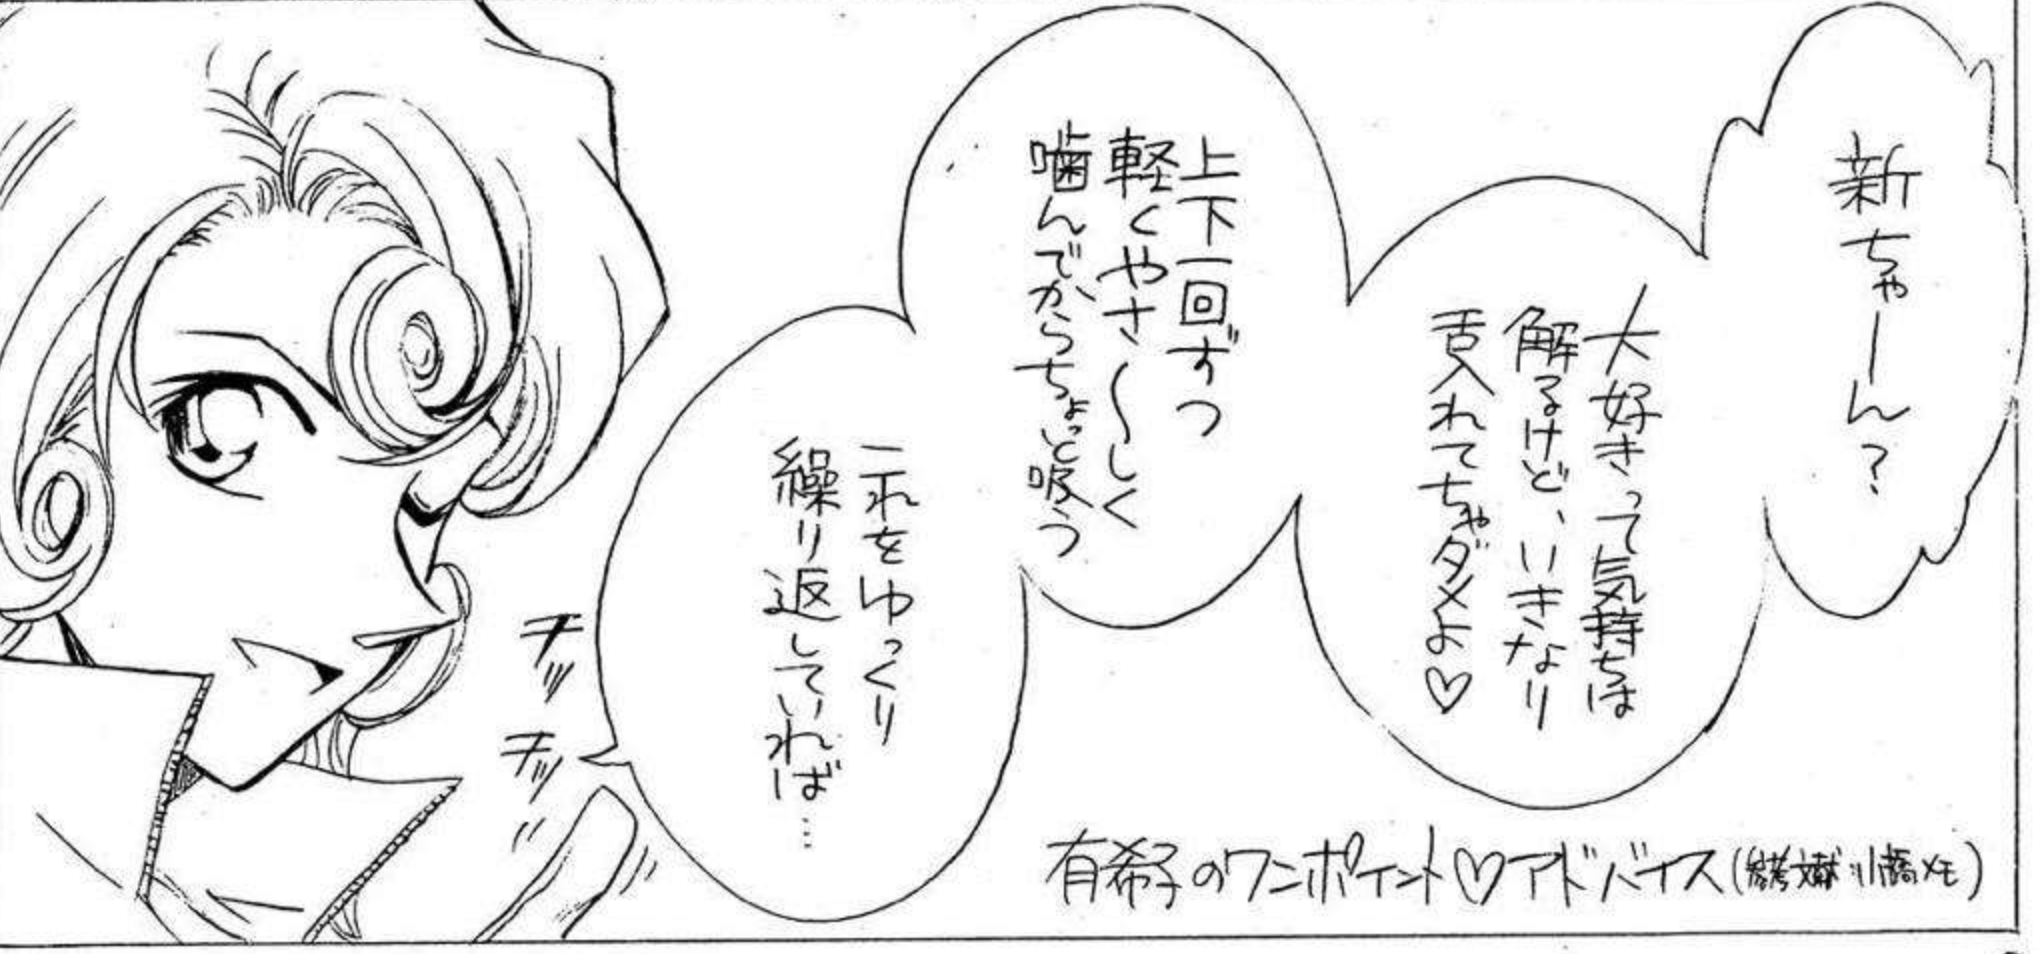 新ちゃーん?
大好きって気持ちは
解るけど、いきなり
舌入れてちゃダメよ♡
上下一回ずつ
軽くやさ〜しく
噛んでからちょっと吸う
これをゆっくり
繰り返していれば…
チッ
チッ
有希子のワンポイント♡アドバイス(参考文献:小橋メモ)